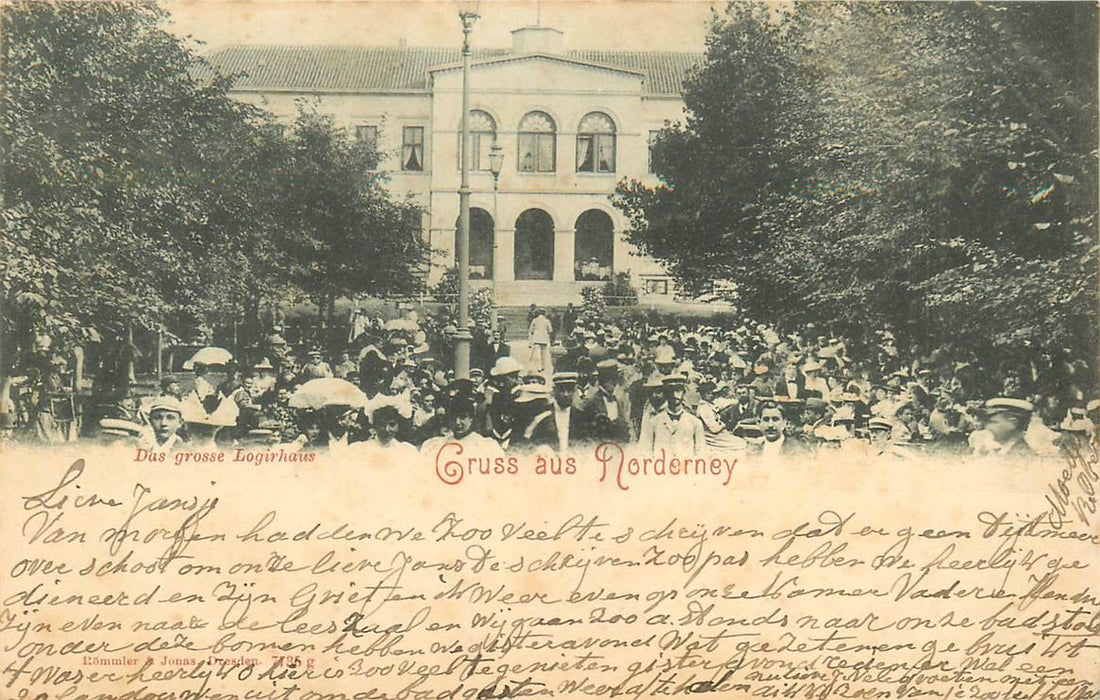 Das grosse Logirhaus
Gruss aus Norderney
Lieve Jansje
Van morgen hadden we zoo veel te schrijven dat er geen Tijd meer
over schoot om onze lieve Jans De schrijven zoo pas hebben we heerlijk ge
dieneerd en zijn Griet en ik weer even op onze Kamer Vader en
zijn even naar de leeszaal en wij gaan zoo a Stonds naar onze bad stoel
onder deze bomen hebben we gisteravond Wat gezeten en gebruikt
t Was er heerlijk O hier is zoo veel te genieten gisteravond
Römmler & Jonas, Dresden. 7136 g
uit om de badgasten zoen van
Moeder